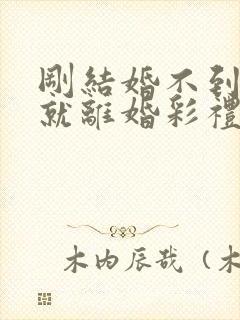 剛結婚不到
就離婚彩禮
木内辰哉（木